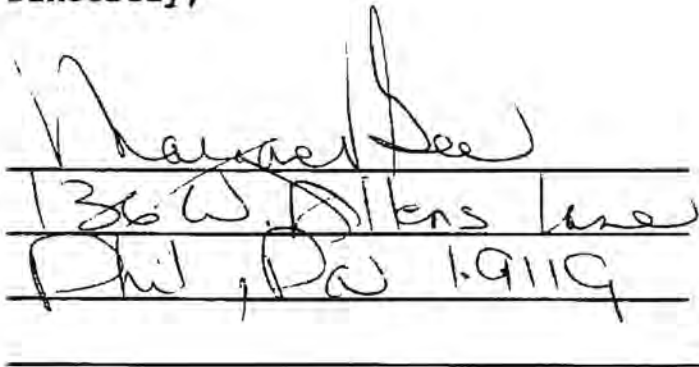 Sincerely,
Margaret
136 W. Allens Lane
Phil, Pa 19119